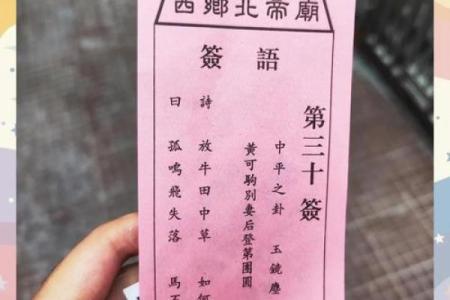 西鄉北帝廟
籤語
第三十籤
中平之卦 玉鏡塵
黃可駒別妻后登第團圓
詩曰
放牛田中草 如何
孤鳴飛失落 馬